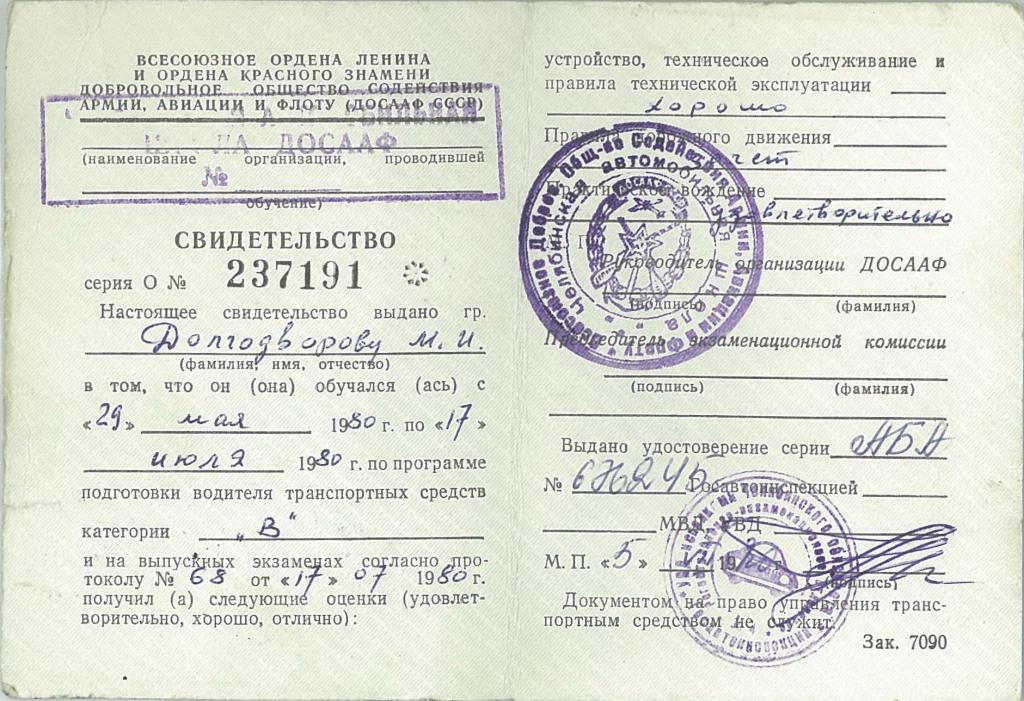 ВСЕСОЮЗНОЕ ОРДЕНА ЛЕНИНА
И ОРДЕНА КРАСНОГО ЗНАМЕНИ
ДОБРОВОЛЬНОЕ ОБЩЕСТВО СОДЕЙСТВИЯ
АРМИИ, АВИАЦИИ И ФЛОТУ (ДОСААФ СССР)
ДОСААФ
(наименование организации, проводившей
№
обучение)
СВИДЕТЕЛЬСТВО
серия О № 237191
Настоящее свидетельство выдано гр.
Долгодворову М. И.
(фамилия, имя, отчество)
в том, что он (она) обучался (ась) с
«29» мая 1980 г. по «17»
июля 1980 г. по программе
подготовки водителя транспортных средств
категории „В"
и на выпускных экзаменах согласно про-
токолу № 68 от «17» 07 1980 г.
получил (а) следующие оценки (удовлет-
ворительно, хорошо, отлично):
устройство, техническое обслуживание и
правила технической эксплуатации
хорошо
Правила дорожного движения
Практическое вождение
Руководитель организации ДОСААФ
(подпись) (фамилия)
Председатель экзаменационной комиссии
(подпись) (фамилия)
Выдано удостоверение серии АБА
№ Госавтоинспекцией
МВД, УВД
М. П. «5» г.
(подпись)
Документом на право управления транс-
портным средством не служит.
Зак. 7090
Всесоюзное Добров. Общ-во Содействия Армии, Авиации и Флоту
Челябинская автомобильная школа